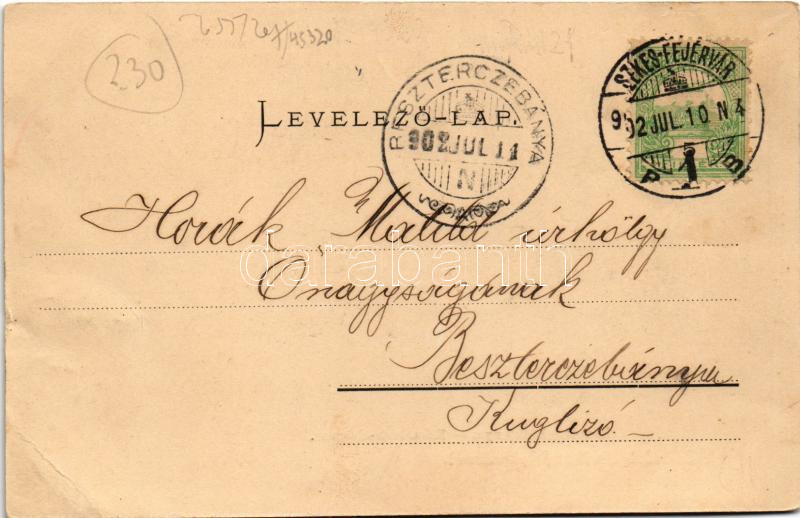 230
45320
LEVELEZŐ-LAP.
BESZTERCZEBÁNYA
902 JUL 11
N
SZÉKES-FEJÉRVÁR
902 JUL. 10 N 4
1
Horák Matild úrhölgy
Őnagyságának
darabanth
Beszterczebánya
Kuglizó